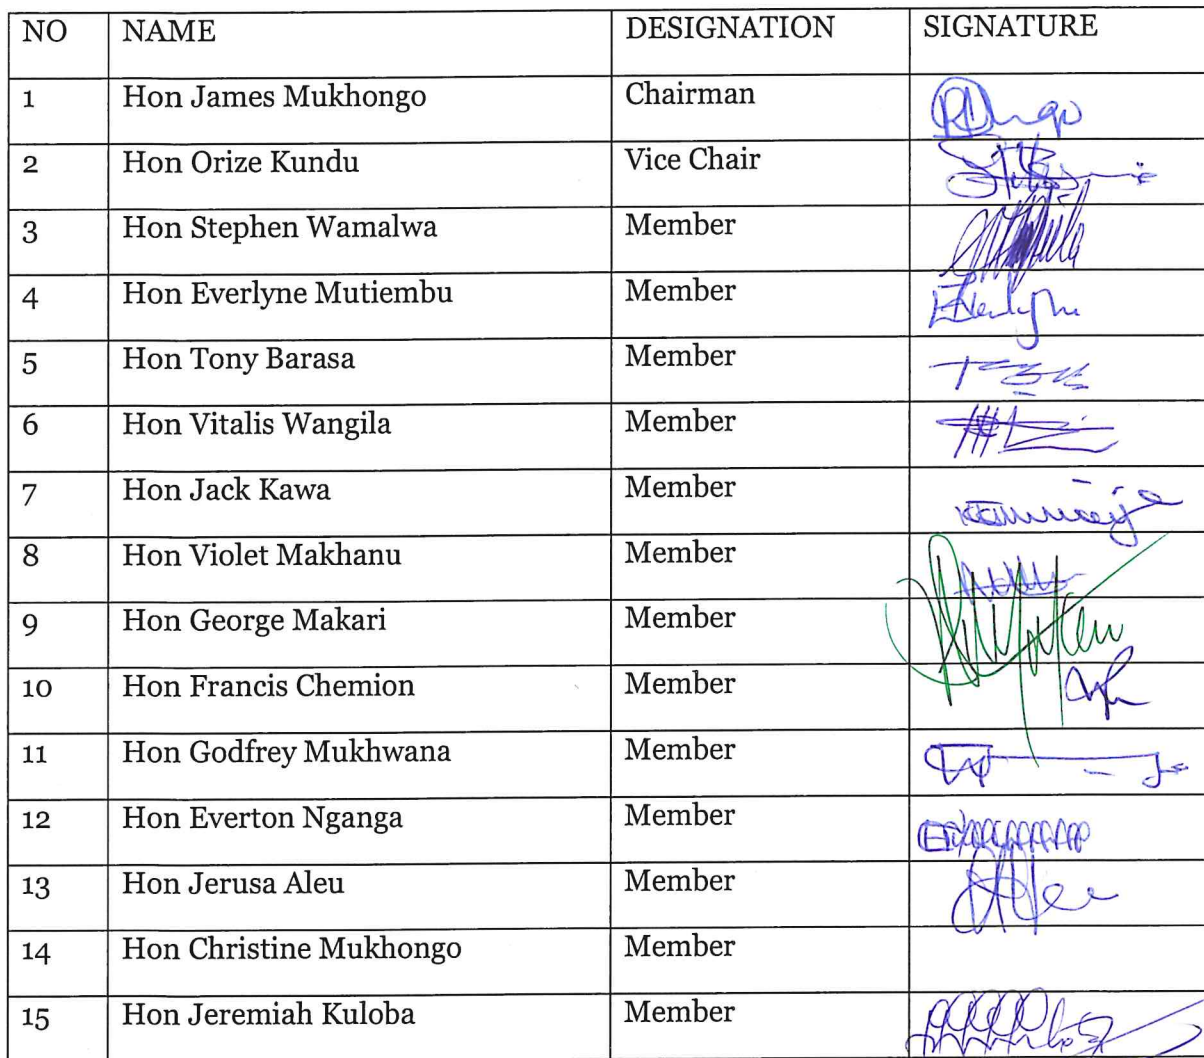 NO NAME DESIGNATION SIGNATURE
1 Hon James Mukhongo Chairman
2 Hon Orize Kundu Vice Chair
3 Hon Stephen Wamalwa Member
4 Hon Everlyne Mutiembu Member
5 Hon Tony Barasa Member
6 Hon Vitalis Wangila Member
7 Hon Jack Kawa Member
8 Hon Violet Makhanu Member
9 Hon George Makari Member
10 Hon Francis Chemion Member
11 Hon Godfrey Mukhwana Member
12 Hon Everton Nganga Member
13 Hon Jerusa Aleu Member
14 Hon Christine Mukhongo Member
15 Hon Jeremiah Kuloba Member